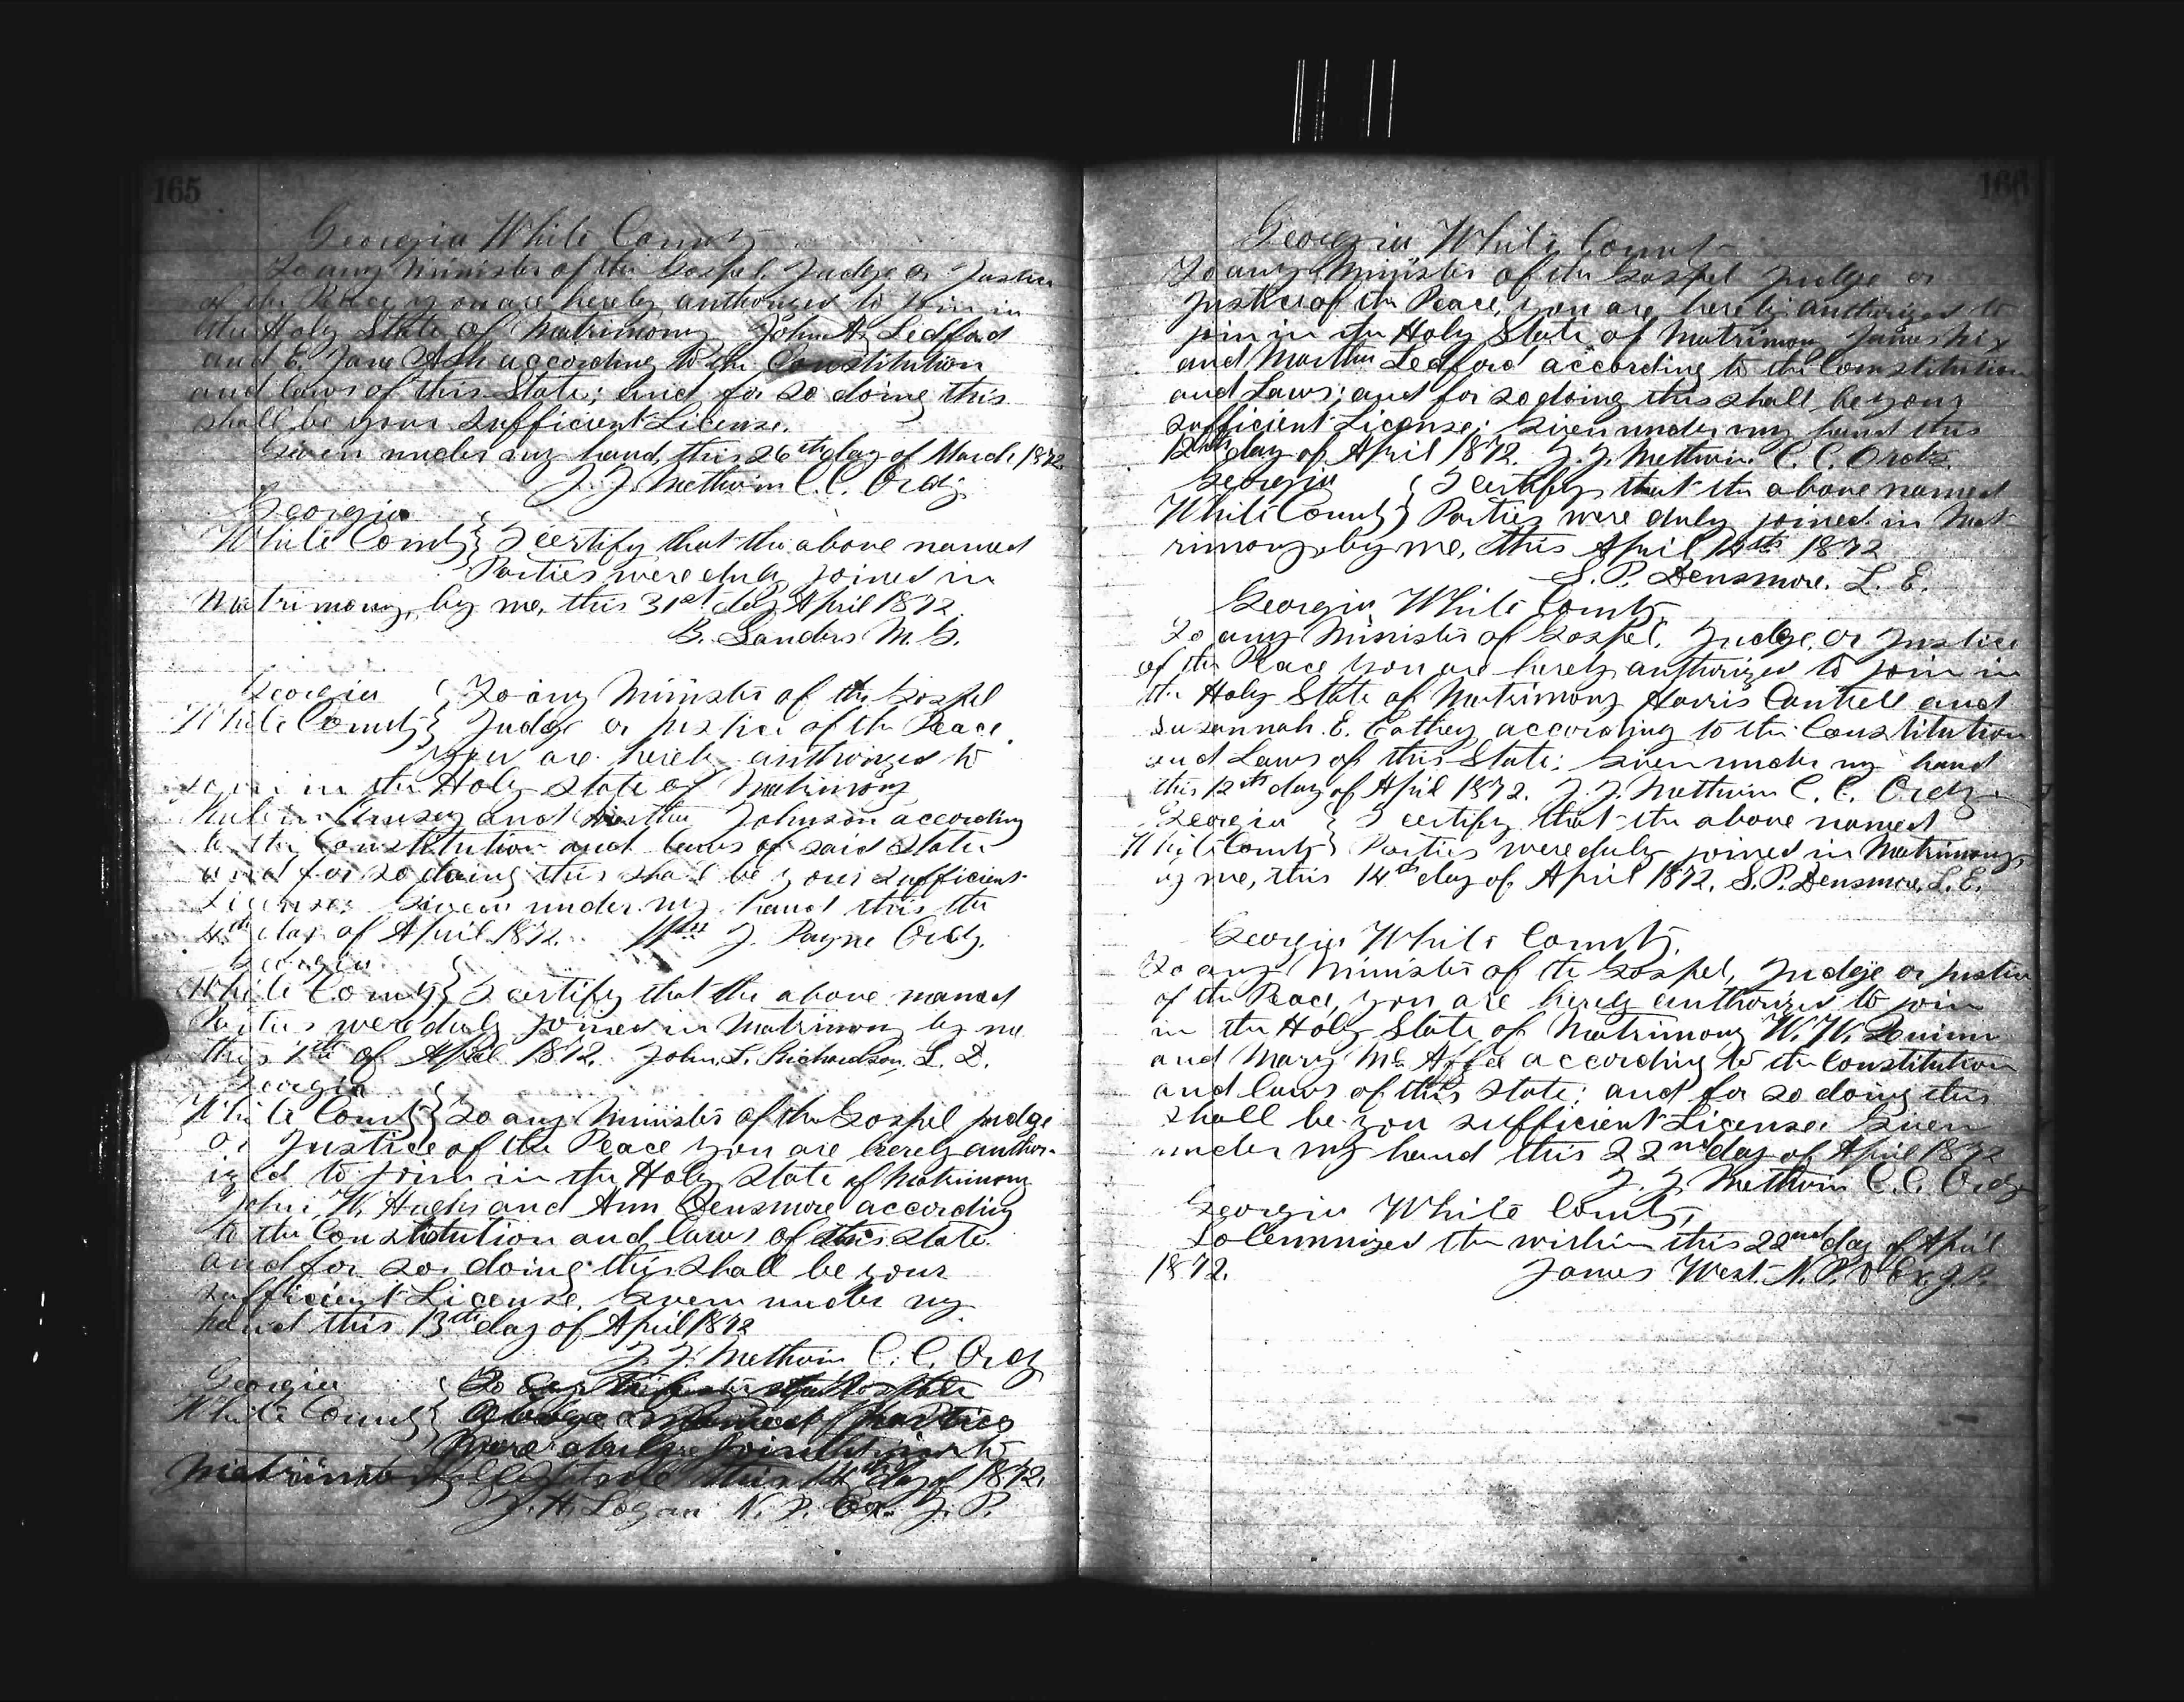 165
Georgia White County
To any Minister of the Gospel, Judge or Justice
of the Peace you are hereby authorized to join in
the Holy State of Matrimony John A. Ledford
and E. Jane Ash according to the Constitution
and laws of this State; and for so doing this
shall be your sufficient License.
Given under my hand, this 26th day of March 1872.
J. J. Methvin C. C. Ordy.
Georgia
White County } I certify that the above named
Parties were duly joined in
Matrimony, by me, this 31st day April 1872.
B. Sanders M. G.
Georgia { To any Minister of the Gospel
White County } Judge or justice of the Peace
you are hereby authorized to
join in the Holy State of Matrimony
and Johnson according
to the Constitution and laws of said State
and for so doing this shall be your sufficient
License. Given under my hand this the
4th day of April 1872. J. Payne Ordy.
Georgia
White County } I certify that the above named
Parties were duly joined in Matrimony by me
this of April 1872. John L. Richardson, L. D.
Georgia
White County } To any Minister of the Gospel judge
or Justice of the Peace you are hereby author-
ized to join in the Holy State of Matrimony
John W. Hughs and Ann Densmore according
to the Constitution and laws of this State.
and for so doing this shall be your
sufficient License. Given under my
hand this 13th day of April 1872
J. J. Methvin C. C. Ordy
Georgia {
White County } named parties
were duly
this 14th day of 1872.
J. H. Logan N. P. Ex. J. P.
166
Georgia White County
To any Minister of the Gospel Judge or
Justice of the Peace, you are hereby authorized to
join in the Holy State of Matrimony James Nix
and Martha Ledford according to the Constitution
and Laws; and for so doing this shall be your
sufficient License; Given under my hand this
12th day of April 1872. J. J. Methvin C. C. Ordy.
Georgia { I certify that the above named
White County } Parties were duly joined in Mat-
rimony, by me, this April 14th 1872
S. P. Densmore. L. E.
Georgia White County
To any Minister of Gospel, Judge, or Justice
of the Peace you are hereby authorized to join in
the Holy State of Matrimony Harris Cantrell and
Susannah E. Cathey according to the Constitution
and Laws of this State; Given under my hand
this 12th day of April 1872. J. J. Methvin C. C. Ordy
Georgia { I certify that the above named
White County } Parties were duly joined in Matrimony
by me, this 14th day of April 1872, S. P. Densmore, L. E.
Georgia White County.
To any Minister of the Gospel, Judge or Justice
of the Peace, you are hereby authorized to join
in the Holy State of Matrimony W. W. Quinn
and Mary Mc Afee according to the Constitution
and laws of this State; and for so doing this
shall be you sufficient License. Given
under my hand this 22nd day of April 1872
J. J. Methvin C. C. Ordy
Georgia White County,
Solemnized the within this 22nd day of April
1872. James West N. P. & Ex. J. P.